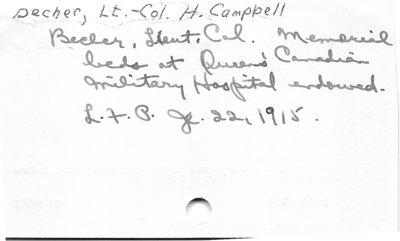 Becher, Lt.-Col. H. Campbell
Becher, Lieut. Col. Memorial
beds at Queen's Canadian
Military Hospital endowed.
L.F.P. Je. 22, 1915.